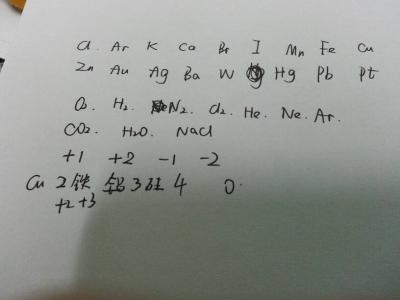 Cl. Ar K Ca Br I Mn Fe Cu
Zn Au Ag Ba W Hg Pb Pt
O₂. H₂. N₂. Cl₂. He. Ne. Ar.
CO₂. H₂O. NaCl
+1 +2 -1 -2
Cu 2铁 铝3硅4 0
+2+3